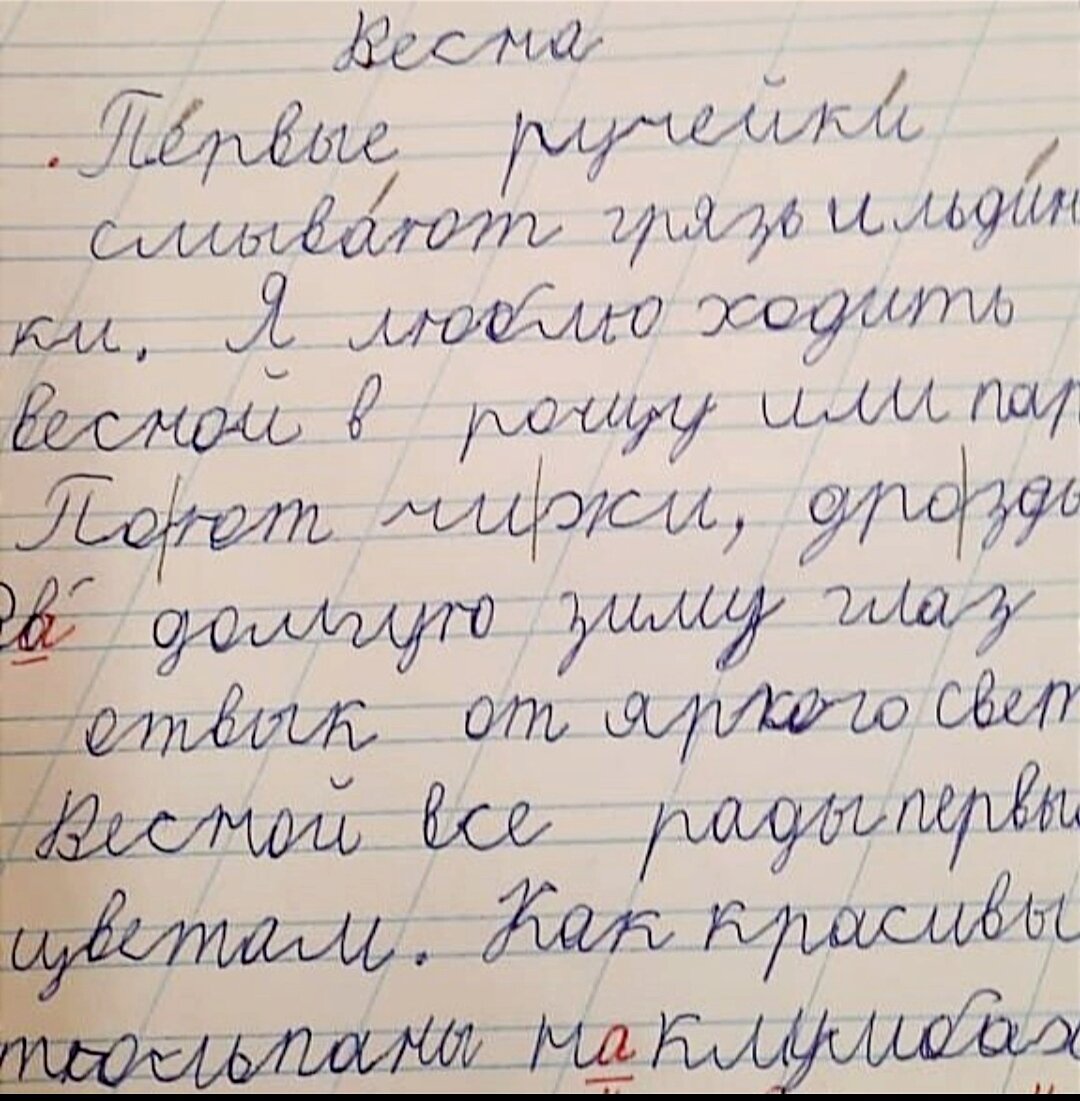 Весна
Пе́рвые ручейки́
смыва́ют грязь и льди́н
ки. Я люблю ходить
весной в рощу или пар
По|ют чи|жи, дро|зды
За долгую зиму глаз
отвык от яркого свет
Весной все рады первы
цветам. Как красивы
тюльпаны на клумбах